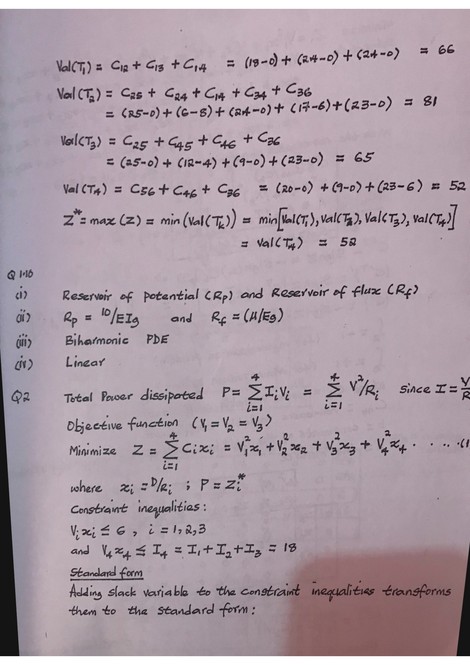 Val(T₁) = C₁₂ + C₁₃ + C₁₄ = (18-0) + (24-0) + (24-0) = 66
Val(T₂) = C₂₅ + C₂₄ + C₁₄ + C₃₄ + C₃₆
= (25-0) + (6-8) + (24-0) + (17-6) + (23-0) = 81
Val(T₃) = C₂₅ + C₄₅ + C₄₆ + C₃₆
= (25-0) + (12-4) + (9-0) + (23-0) = 65
Val(T₄) = C₅₆ + C₄₆ + C₃₆ = (20-0) + (9-0) + (23-6) = 52
Z* = max(Z) = min(Val(Tₖ)) = min[Val(T₁), Val(T₂), Val(T₃), Val(T₄)]
= Val(T₄) = 52
Q 1.10
(i) Reservoir of potential (Rp) and Reservoir of flux (Rf)
(ii) Rp = 10/EIg and Rf = (μ/Eg)
(iii) Biharmonic PDE
(iv) Linear
Q2 Total Power dissipated P = Σ⁴ᵢ₌₁ IᵢVᵢ = Σ⁴ᵢ₌₁ V²/Rᵢ since I = V/R
Objective function (V₁ = V₂ = V₃)
Minimize Z = Σ⁴ᵢ₌₁ Cᵢxᵢ = V₁²x₁ + V₂²x₂ + V₃²x₃ + V₄²x₄ . . . . . (1
where xᵢ = D/Rᵢ ; P = Zᵢ*
Constraint inequalities:
Vᵢxᵢ ≤ 6 , i = 1, 2, 3
and V₄x₄ ≤ I₄ = I₁ + I₂ + I₃ = 18
Standard form
Adding slack variable to the constraint inequalities transforms
them to the standard form: